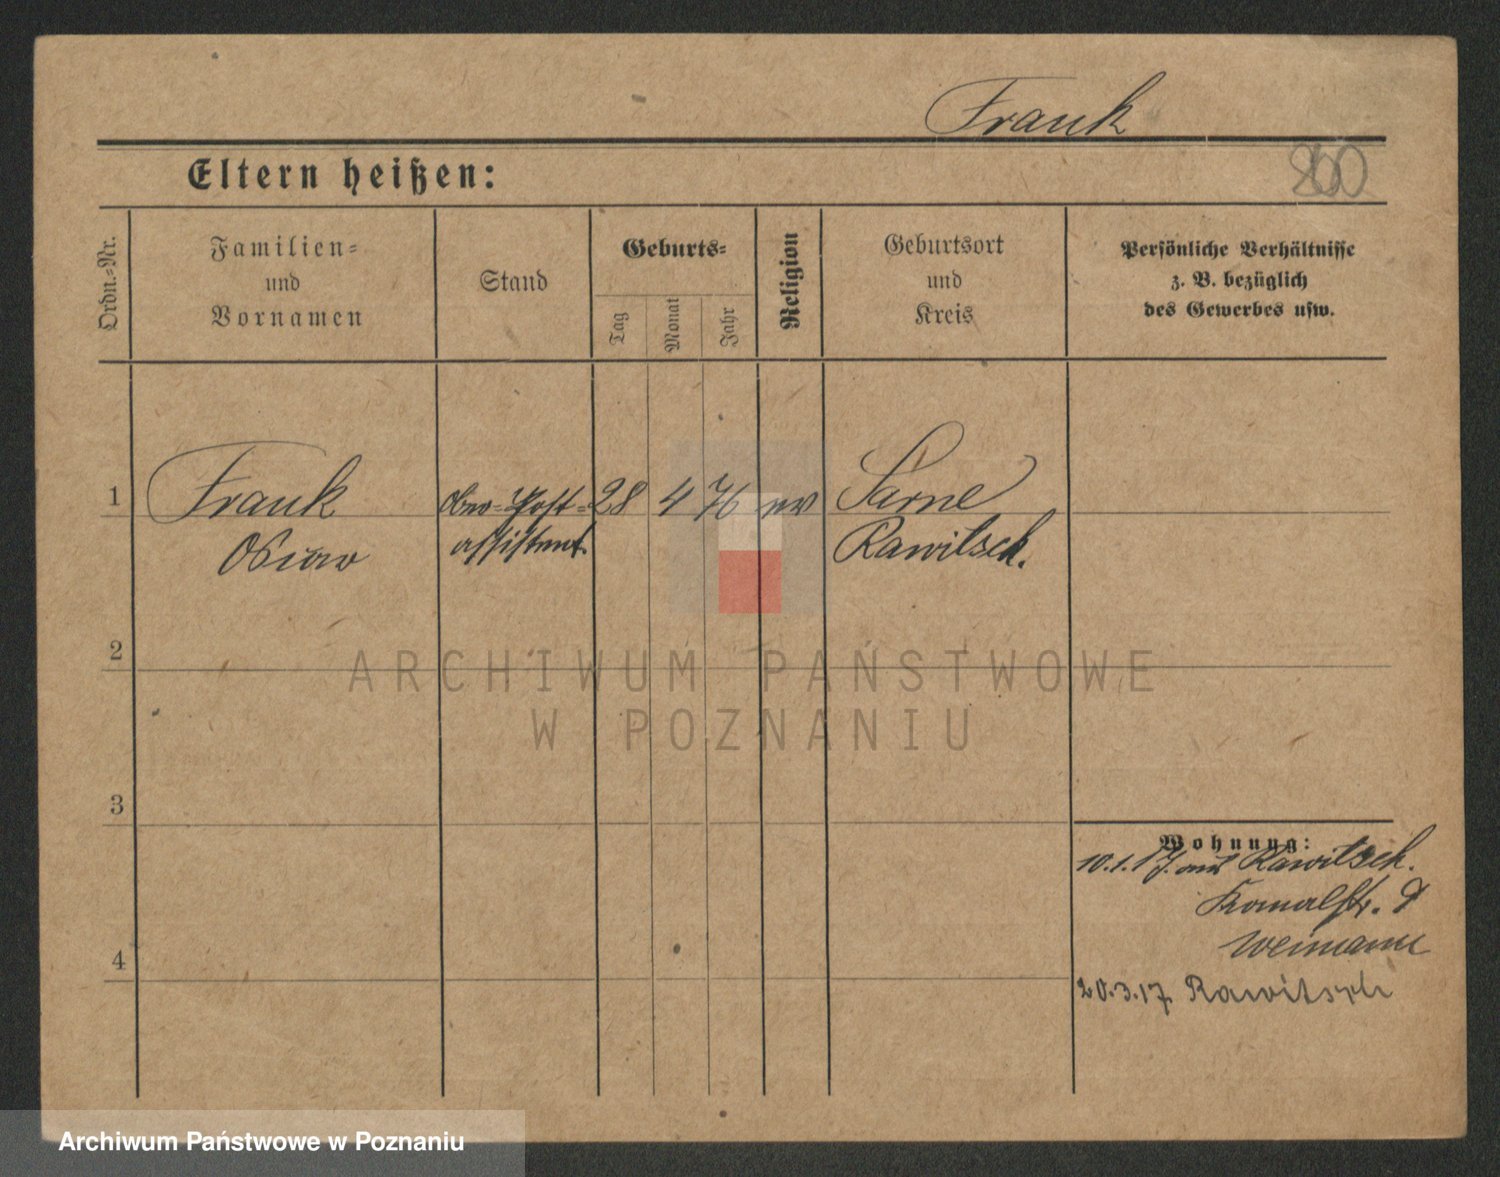 Frank
Eltern heißen:
200
Ordn.-Nr.
Familien-
und
Vornamen
Stand
Geburts-
Tag
Monat
Jahr
Religion
Geburtsort
und
Kreis
Persönliche Verhältnisse
z. B. bezüglich
des Gewerbes usw.
1
Frank
Ober-Post-
28
4
76
ev
Sarne
Oskar
assistent
Rawitsch.
2
ARCHIWUM PAŃSTWOWE
W POZNANIU
3
Wohnung:
10.1.17. aus Rawitsch.
9
Weimann
4
20.3.17. Rawitsch
Archiwum Państwowe w Poznaniu